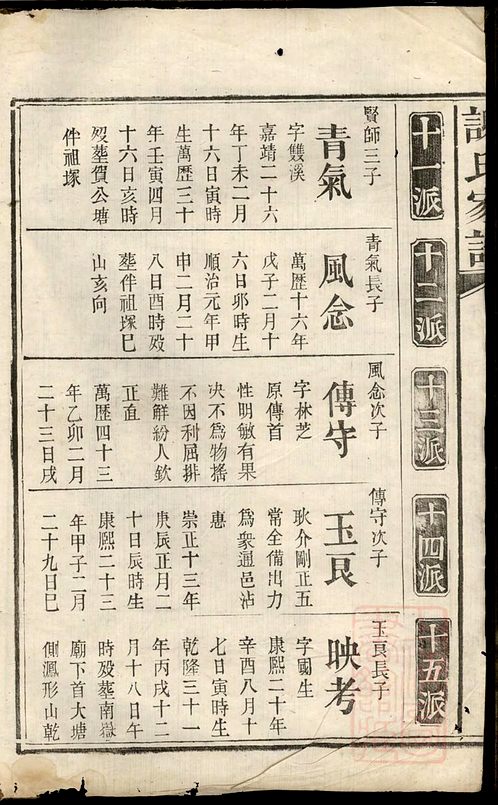 十一派
十二派
十三派
十四派
十五派
賢師三子
青氣
字雙溪
嘉靖二十六
年丁未二月
十六日寅時
生萬歷三十
年壬寅四月
十六日亥時
歿塟賀公塘
伴祖塚
青氣長子
風念
萬歷十六年
戊子二月十
六日卯時生
順治元年甲
申二月二十
八日酉時歿
塟伴祖塚巳
山亥向
風念次子
傳守
字林芝
原傳首
性明敏有果
决不為物搖
不因利屈排
難觧紛人欽
正直
萬歷四十三
年乙卯二月
二十三日戌
傳守次子
玉艮
耿介剛正五
常全備出力
為衆通邑沾
惠
崇正十三年
庚辰正月二
十日辰時生
康熙二十三
年甲子二月
二十九日巳
玉艮長子
映考
字國生
康熙二十年
辛酉八月十
七日寅時生
乾隆三十一
年丙戌十二
月十八日午
時歿塟南嶽
廟下首大塘
側鳳形山乾